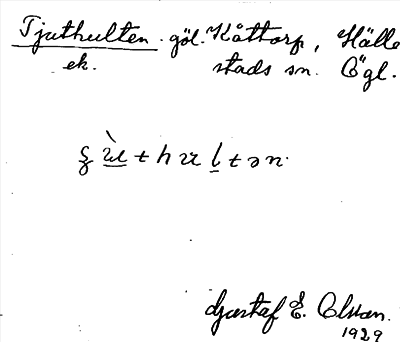 Tjuthulten. göl. Kåttorp, Hälle
ek. stads sn. Ögl.
ʒ ù t h u l t ə n.
Gustaf E. Olsson.
1929